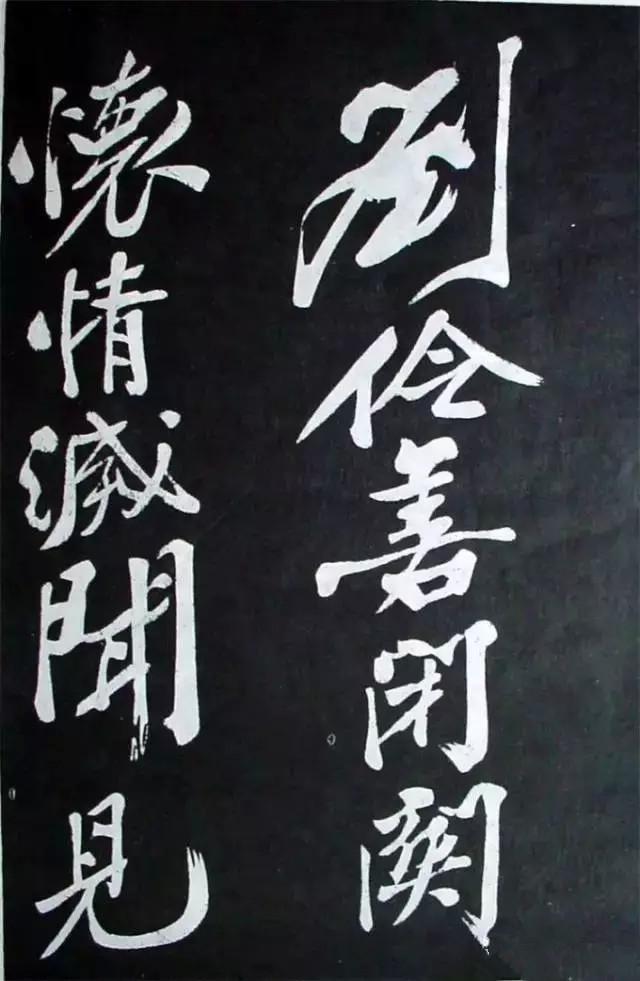 劉伶善閉關
懷情滅聞見